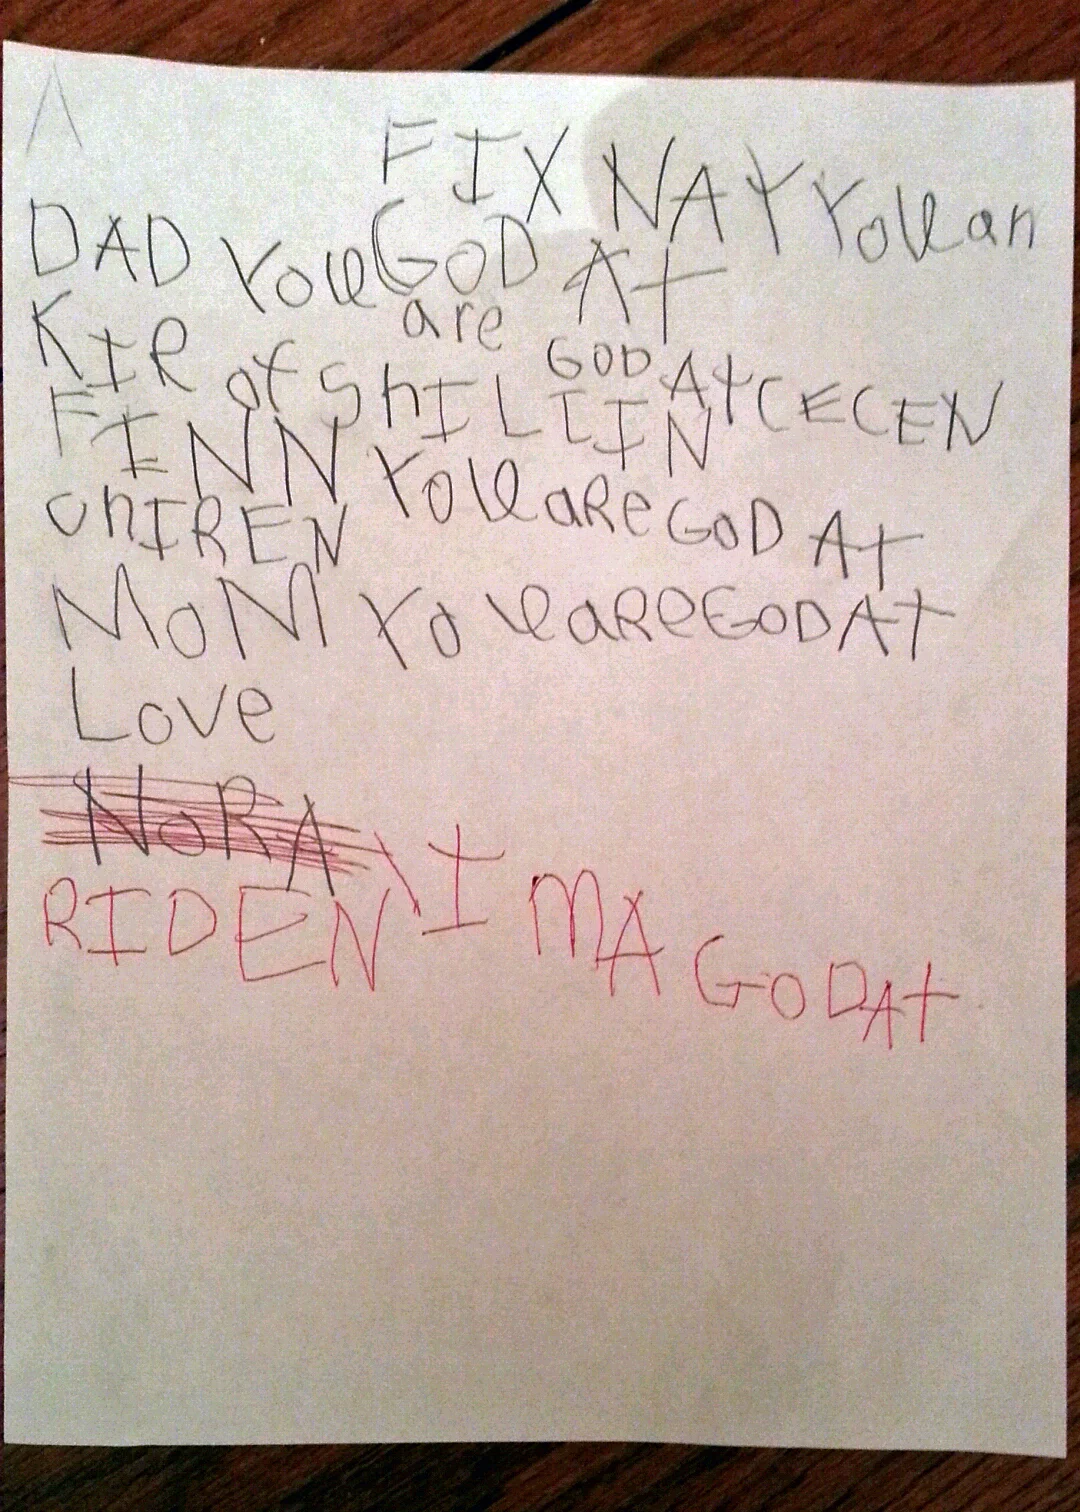 FIX NAY YoU an
DAD YoU GOD At
are
KIR of ShILLIN GOD At CECEN
FINN
chIREN YoU aRe GOD At
MoM Yo U aRe GOD At
Love
NoRA
RIDEN \ I MA GODAt